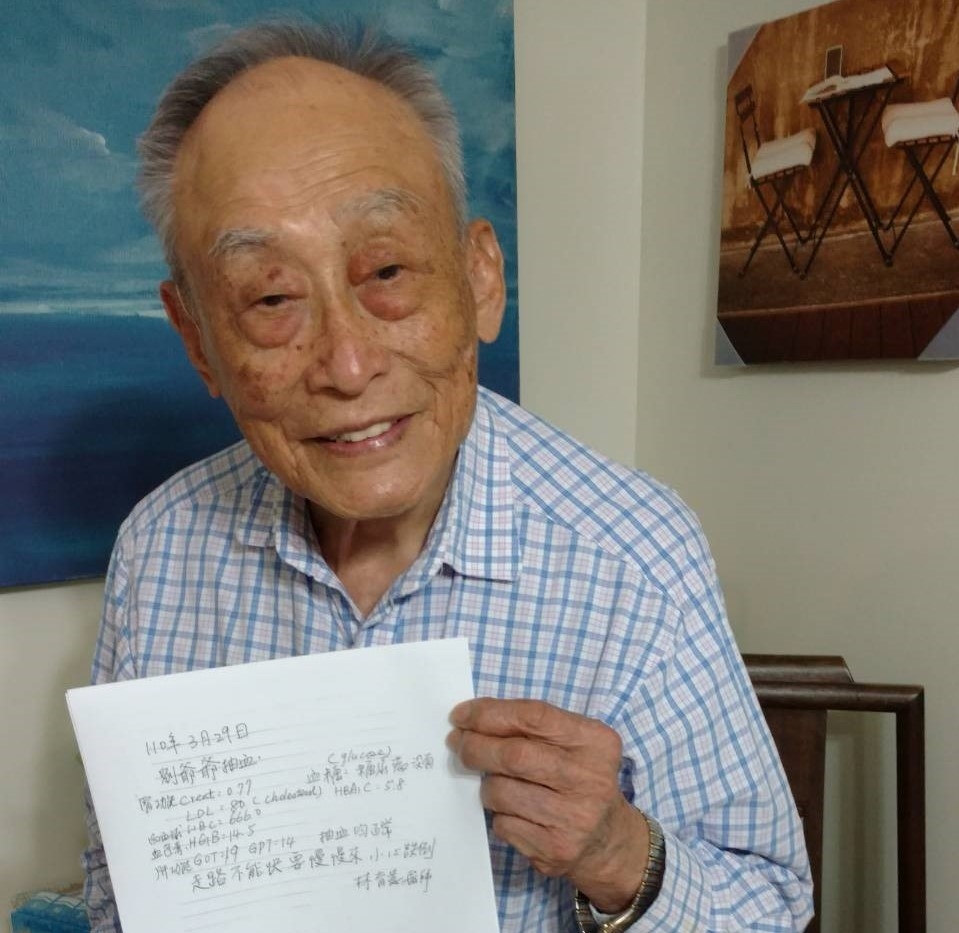 110年 3月29日
劉爺爺抽血:
(glucose)
血糖: 糖尿病 没有
腎功能 Creat: 0.77
LDL: 80 (cholesterol) HBA1C: 5.8
白血球 WBC: 6660
血色素: HGB: 14.5
肝功能 GOT: 19 GPT: 14 抽血均正常
走路不能快要慢慢來 小心跌倒
林 醫師